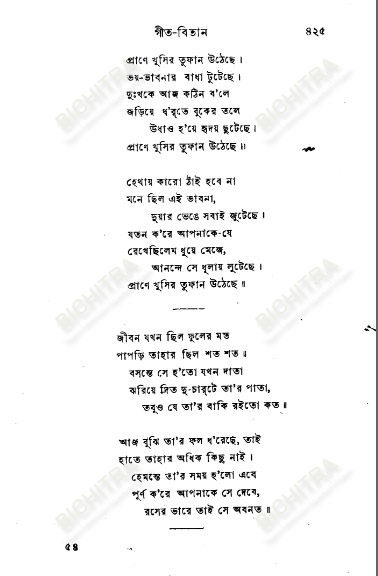 গীত-বিতান ৪২৫
প্রাণে খুসির তুফান উঠেছে।
ভয়-ভাবনার বাধা টুটেছে।
দুঃখকে আজ কঠিন ব'লে
জড়িয়ে ধ'র্‌তে বুকের তলে
উধাও হ'য়ে হৃদয় ছুটেছে।
প্রাণে খুসির তুফান উঠেছে॥
হেথায় কারো ঠাঁই হবে না
মনে ছিল এই ভাবনা,
দুয়ার ভেঙে সবাই জুটেছে।
যতন ক'রে আপনাকে-যে
রেখেছিলেম ধুয়ে মেজে,
আনন্দে সে ধূলায় লুটেছে।
প্রাণে খুসির তুফান উঠেছে॥
জীবন যখন ছিল ফুলের মত
পাপড়ি তাহার ছিল শত শত॥
বসন্তে সে হ'তো যখন দাতা
ঝরিয়ে দিত দু-চার্‌টে তা'র পাতা,
তবুও যে তা'র বাকি রইতো কত॥
আজ বুঝি তা'র ফল ধ'রেছে, তাই
হাতে তাহার অধিক কিছু নাই।
হেমন্তে তা'র সময় হ'লো এবে
পূর্ণ ক'রে আপনাকে সে দেবে,
রসের ভারে তাই সে অবনত॥
৫৪
BICHITRA
BICHITRA
BICHITRA
BICHITRA
BICHITRA
BICHITRA